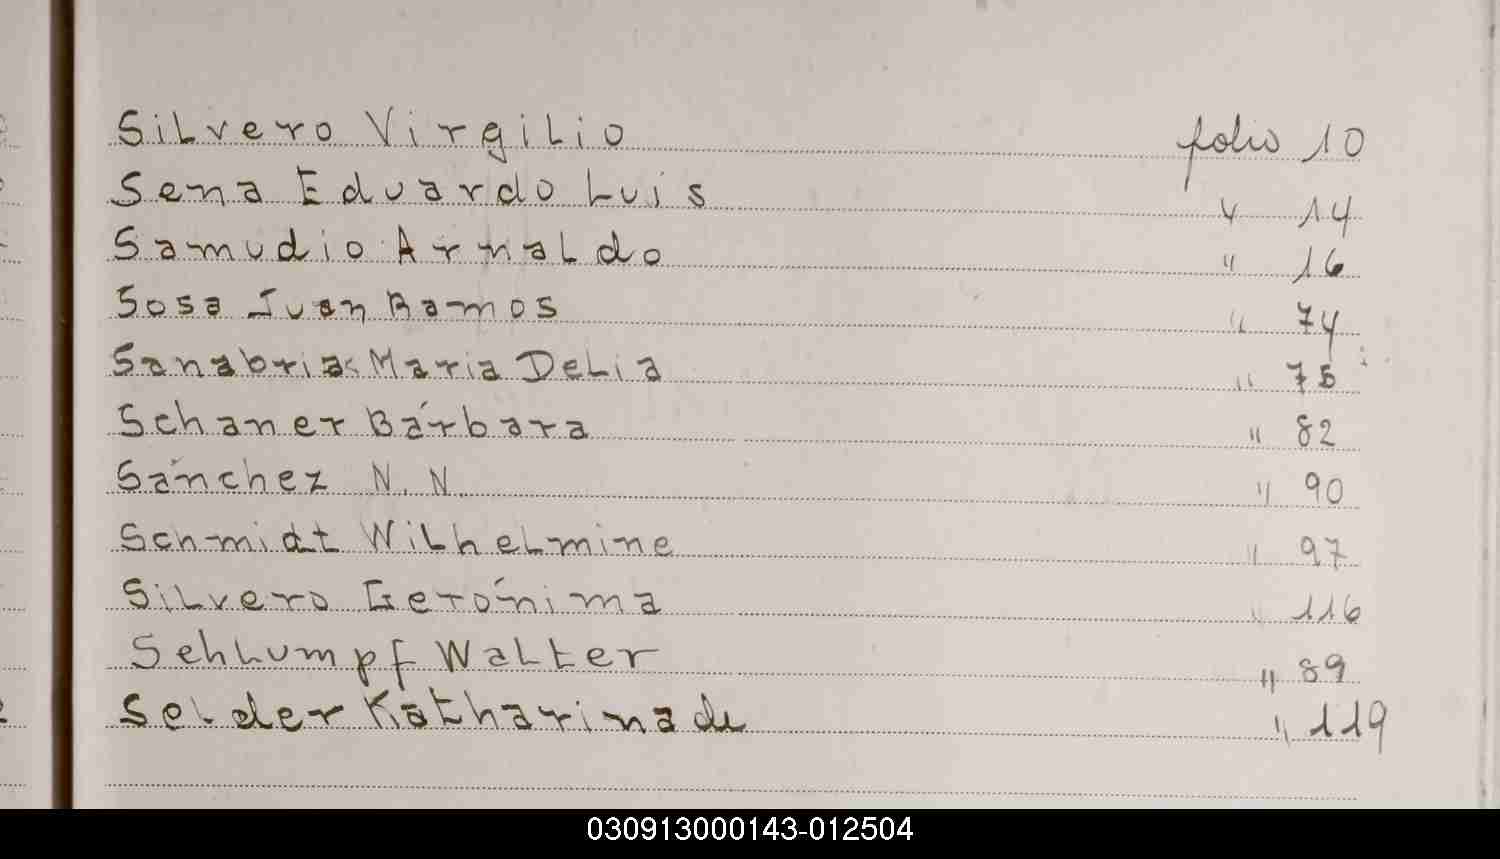 Silvero Virgilio folio 10
Sena Eduardo Luis " 14
Samudio Arnaldo " 16
Sosa Juan Ramos " 74
Sanabria Maria Delia " 75
Schaner Bárbara " 82
Sánchez N. N. " 90
Schmidt Wilhelmine " 97
Silvero Gerónima " 116
Sehlumpf Walter " 89
Selder Katharina de " 119
030913000143-012504